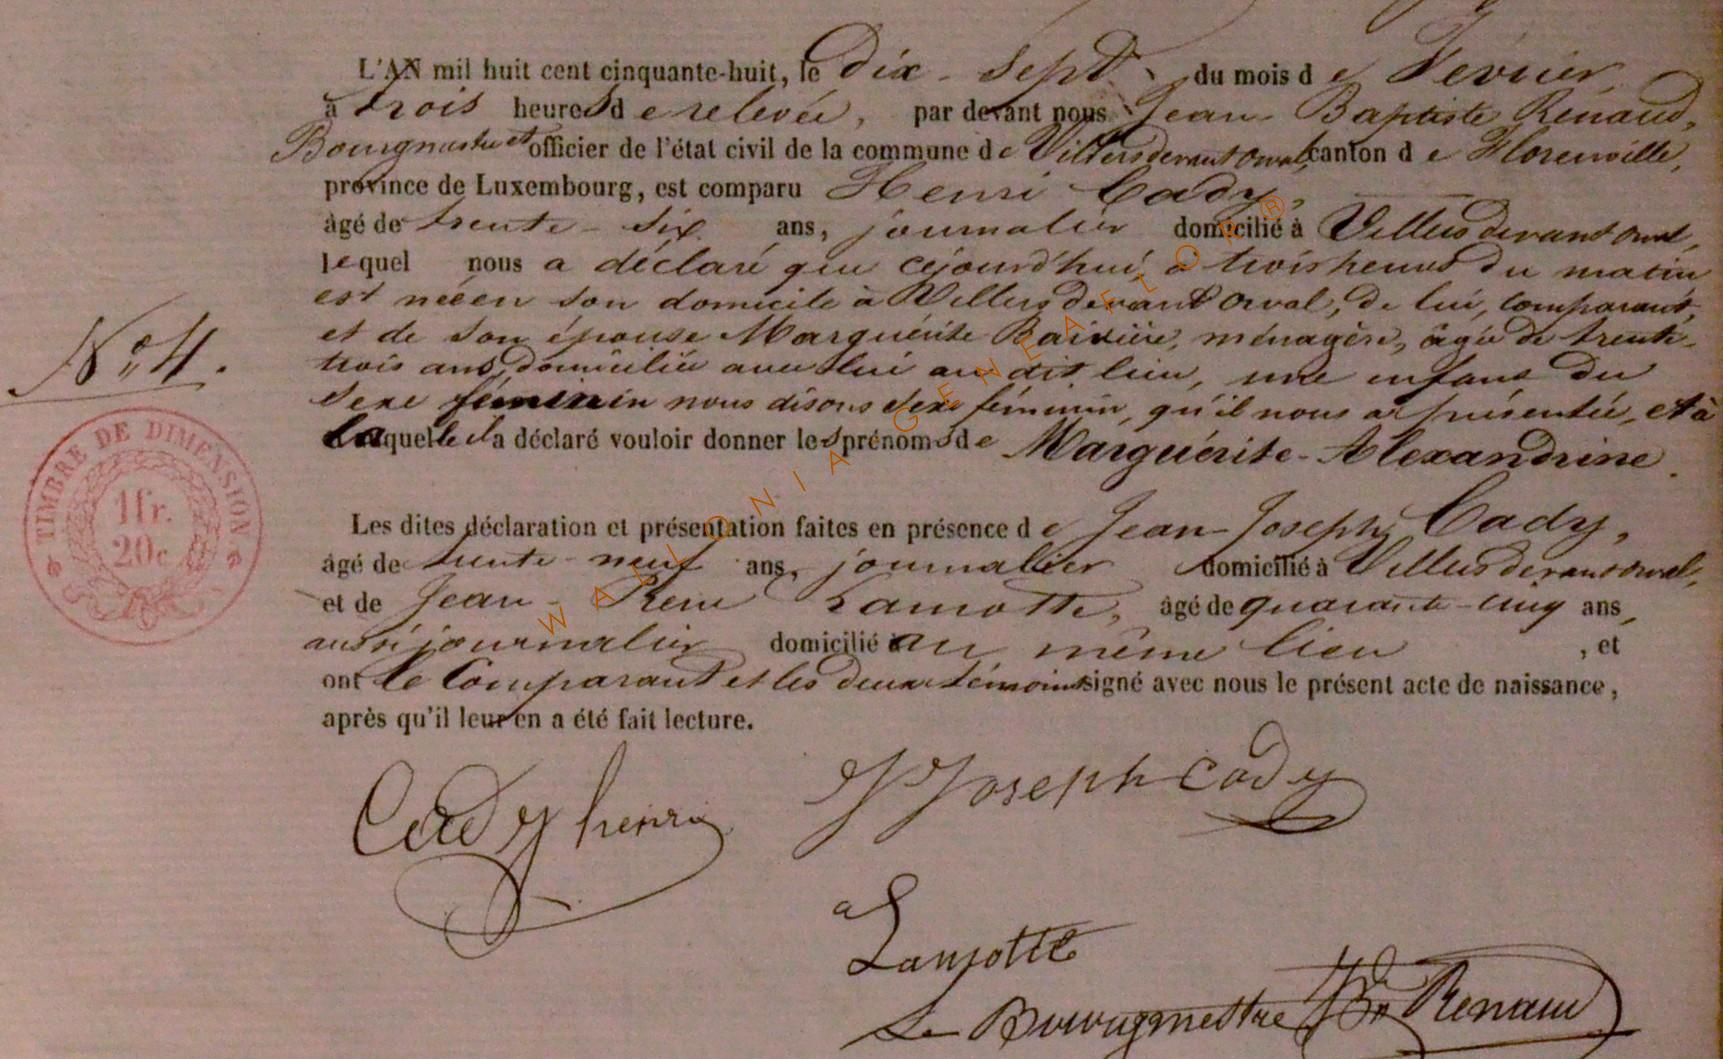 L'AN mil huit cent cinquante-huit, le dix-sept du mois de Février
à trois heures de relevée, par devant nous Jean Baptiste Rénaud,
Bourgmestre et officier de l'état civil de la commune de Villersdevant Orval, canton de Florenville,
province de Luxembourg, est comparu Henri Cady,
âgé de trente-six ans, journalier domicilié à Villers devant Orval,
lequel nous a déclaré que cejourd'hui à trois heures du matin
est néeen son domicile à Villers devant Orval, de lui, comparant,
et de son épouse Marguérite ménagère, âgée de trente-
trois ans, domiciliée avec lui au dit lieu, une enfant du
sexe féminin nous disons sexe féminin, qu'il nous a présentée, et à
laquelle il a déclaré vouloir donner les prénoms de Marguérite-Alexandrine.
N° 4.
TIMBRE DE DIMENSION
1fr.
20c
Les dites déclaration et présentation faites en présence de Jean-Joseph Cady,
âgé de trente-neuf ans, journalier domicilié à Villers devant Orval,
et de Jean-Remi Lamotte, âgé de quarante-cinq ans,
aussi journalier domicilié au même lieu, et
ont le Comparant et les deux témoins signé avec nous le présent acte de naissance,
après qu'il leur en a été fait lecture.
Cady henri
JJoseph Cady
Lamotte
Le Bourgmestre JBte Renaud
WALLONIA GENEAFLOR®